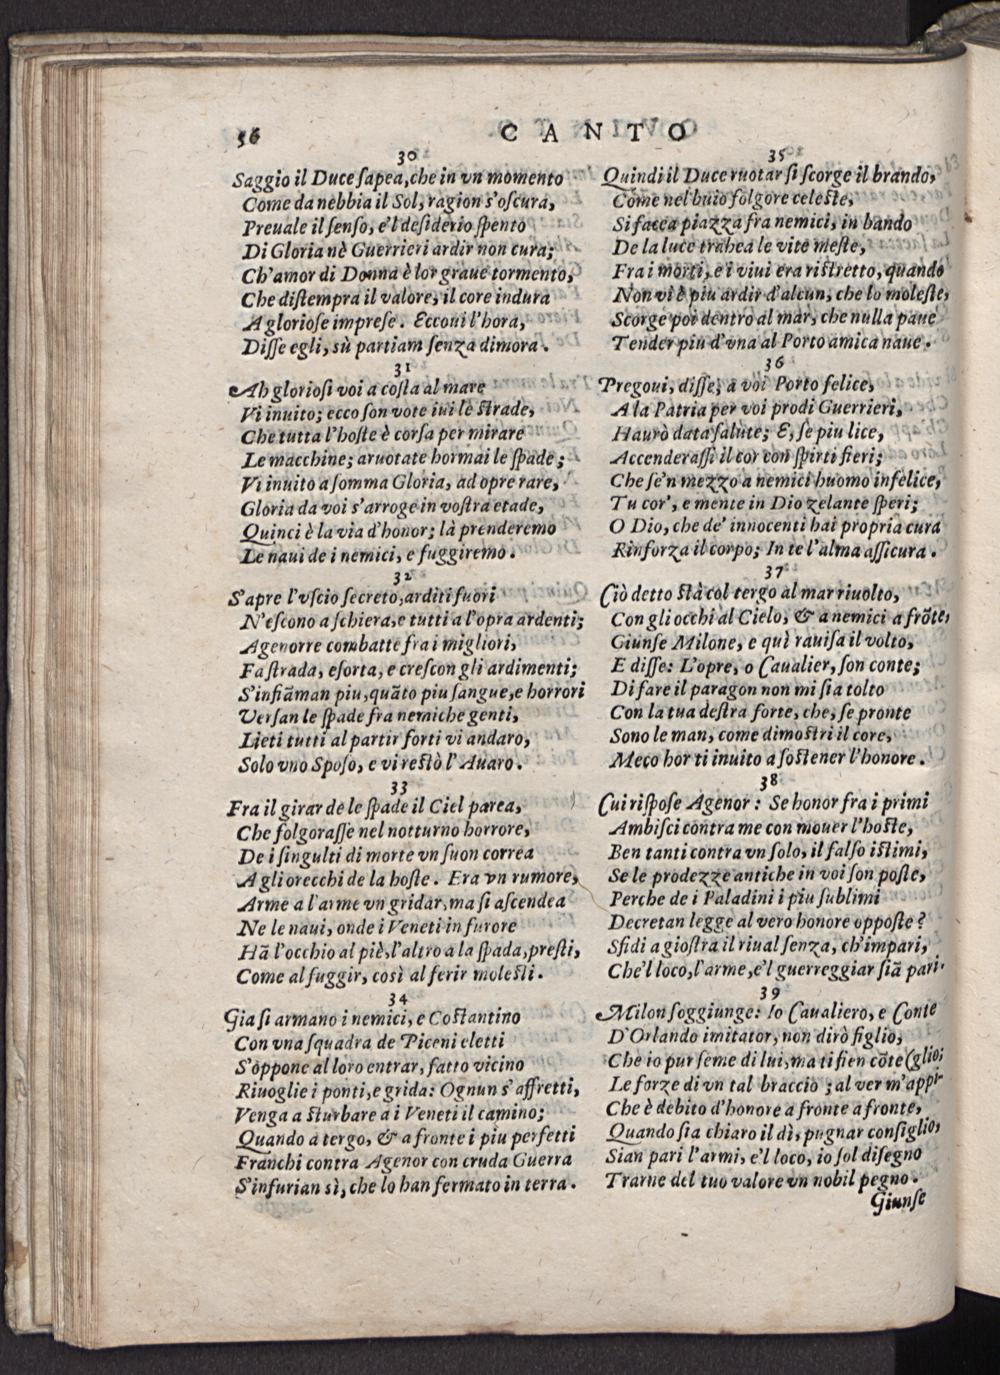 56
CANTO
30
Saggio il Duce ſapea, che in vn momento
Come da nebbia il Sol, ragion s'oſcura,
Preuale il ſenſo, e'l deſiderio ſpento
Di Gloria nè Guerrieri ardir non cura;
Ch'amor di Donna è lor graue tormento,
Che diſtempra il valore, il core indura
A glorioſe impreſe. Eccoui l'hora,
Diſſe egli, sù partiam ſenza dimora.
31
Ah glorioſi voi a coſta al mare
Vi inuito; ecco ſon vote iui le ſtrade,
Che tutta l'hoſte è corſa per mirare
Le macchine; aruotate hormai le ſpade;
Vi inuito a ſomma Gloria, ad opre rare,
Gloria da voi s'arroge in voſtra etade,
Quinci è la via d'honor; là prenderemo
Le naui de i nemici, e fuggiremo.
32
S'apre l'vſcio ſecreto, arditi fuori
N'eſcono a ſchiera, e tutti a l'opra ardenti;
Agenorre combatte fra i migliori,
Fa ſtrada, eſorta, e creſcon gli ardimenti;
S'infiāman piu, quāto piu ſangue, e horrori
Verſan le ſpade fra nemiche genti,
Lieti tutti al partir forti vi andaro,
Solo vno Spoſo, e vi reſtò l'Auaro.
33
Fra il girar de le ſpade il Ciel parea,
Che folgoraſſe nel notturno horrore,
De i ſingulti di morte vn ſuon correa
A gli orecchi de la hoſte. Era vn rumore,
Arme a l'arme vn gridar, ma ſi aſcendea
Ne le naui, onde i Veneti in furore
Hā l'occhio al piè, l'altro a la ſpada, preſti,
Come al fuggir, così al ferir moleſti.
34
Gia ſi armano i nemici, e Coſtantino
Con vna ſquadra de Piceni eletti
S'oppone al loro entrar, fatto vicino
Riuoglie i ponti, e grida: Ognun s'affretti,
Venga a ſturbare a i Veneti il camino;
Quando a tergo, & a fronte i piu perfetti
Franchi contra Agenor con cruda Guerra
S'infurian sì, che lo han fermato in terra.
35
Quindi il Duce ruotar ſi ſcorge il brando,
Come nel buio folgore celeſte,
Si facea piazza fra nemici, in bando
De la luce trahea le vite meſte,
Fra i morti, e i viui era riſtretto, quando
Non vi è piu ardir d'alcun, che lo moleſte,
Scorge poi dentro al mar, che nulla paue
Tender piu d'vna al Porto amica naue.
36
Pregoui, diſſe, a voi Porto felice,
A la Patria per voi prodi Guerrieri,
Haurò data ſalute; E, ſe piu lice,
Accenderaſſi il cor con ſpirti fieri;
Che ſe'n mezzo a nemici huomo infelice,
Tu cor', e mente in Dio zelante ſperi;
O Dio, che de' innocenti hai propria cura
Rinforza il corpo; In te l'alma aſſicura.
37
Ciò detto ſtà col tergo al mar riuolto,
Con gli occhi al Cielo, & a nemici a frōte,
Giunſe Milone, e quì rauiſa il volto,
E diſſe: L'opre, o Caualier, ſon conte;
Di fare il paragon non mi ſia tolto
Con la tua deſtra forte, che, ſe pronte
Sono le man, come dimoſtri il core,
Meco hor ti inuito a ſoſtener l'honore.
38
Cui riſpoſe Agenor: Se honor fra i primi
Ambiſci contra me con mouer l'hoſte,
Ben tanti contra vn ſolo, il falſo iſtimi,
Se le prodezze antiche in voi ſon poſte,
Perche de i Paladini i piu ſublimi
Decretan legge al vero honore oppoſte?
Sfidi a gioſtra il riual ſenza, ch'impari,
Che'l loco, l'arme, e'l guerreggiar ſiā pari.
39
Milon ſoggiunge: Io Caualiero, e Conte
D'Orlando imitator, non dirò figlio,
Che io pur ſeme di lui, ma ti ſien cōte (glio;
Le forze di vn tal braccio; al ver m'appi-
Che è debito d'honore a fronte a fronte,
Quando ſia chiaro il dì, pugnar conſiglio,
Sian pari l'armi, e'l loco, io ſol diſegno
Trarne del tuo valore vn nobil pegno.
Giunſe